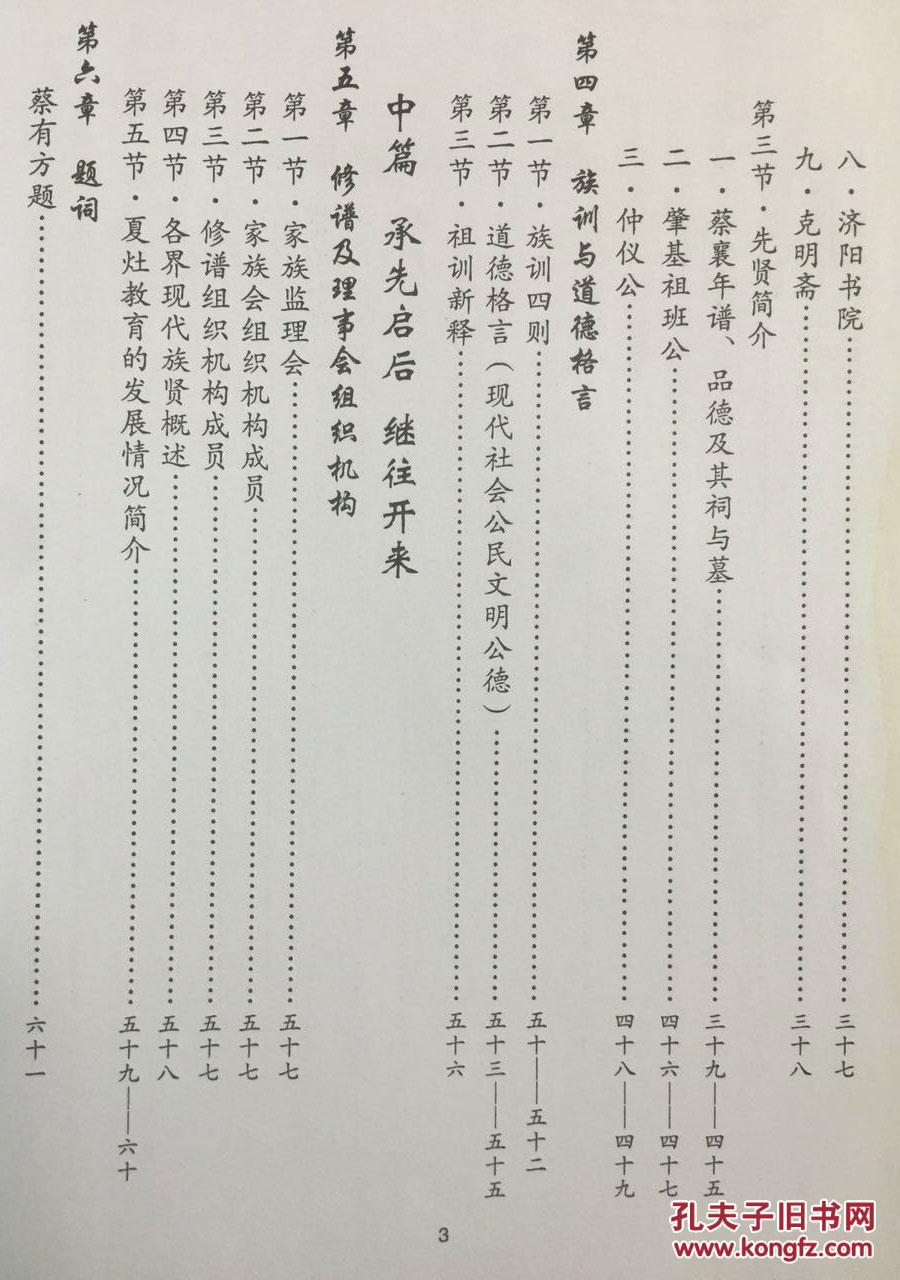 八·济阳书院……三十七
九·克明斋……三十八
第三节·先贤简介
一·蔡襄年谱、品德及其祠与墓……三十九——四十五
二·肇基祖班公……四十六——四十七
三·仲仪公……四十八——四十九
第四章 族训与道德格言
第一节·族训四则……五十——五十二
第二节·道德格言(现代社会公民文明公德)……五十三——五十五
第三节·祖训新释……五十六
中篇 承先启后 继往开来
第五章 修谱及理事会组织机构
第一节·家族监理会……五十七
第二节·家族会组织机构成员……五十七
第三节·修谱组织机构成员……五十七
第四节·各界现代族贤概述……五十八
第五节·夏灶教育的发展情况简介……五十九——六十
第六章 题词
蔡有方题……六十一
3
孔夫子旧书网
www.kongfz.com